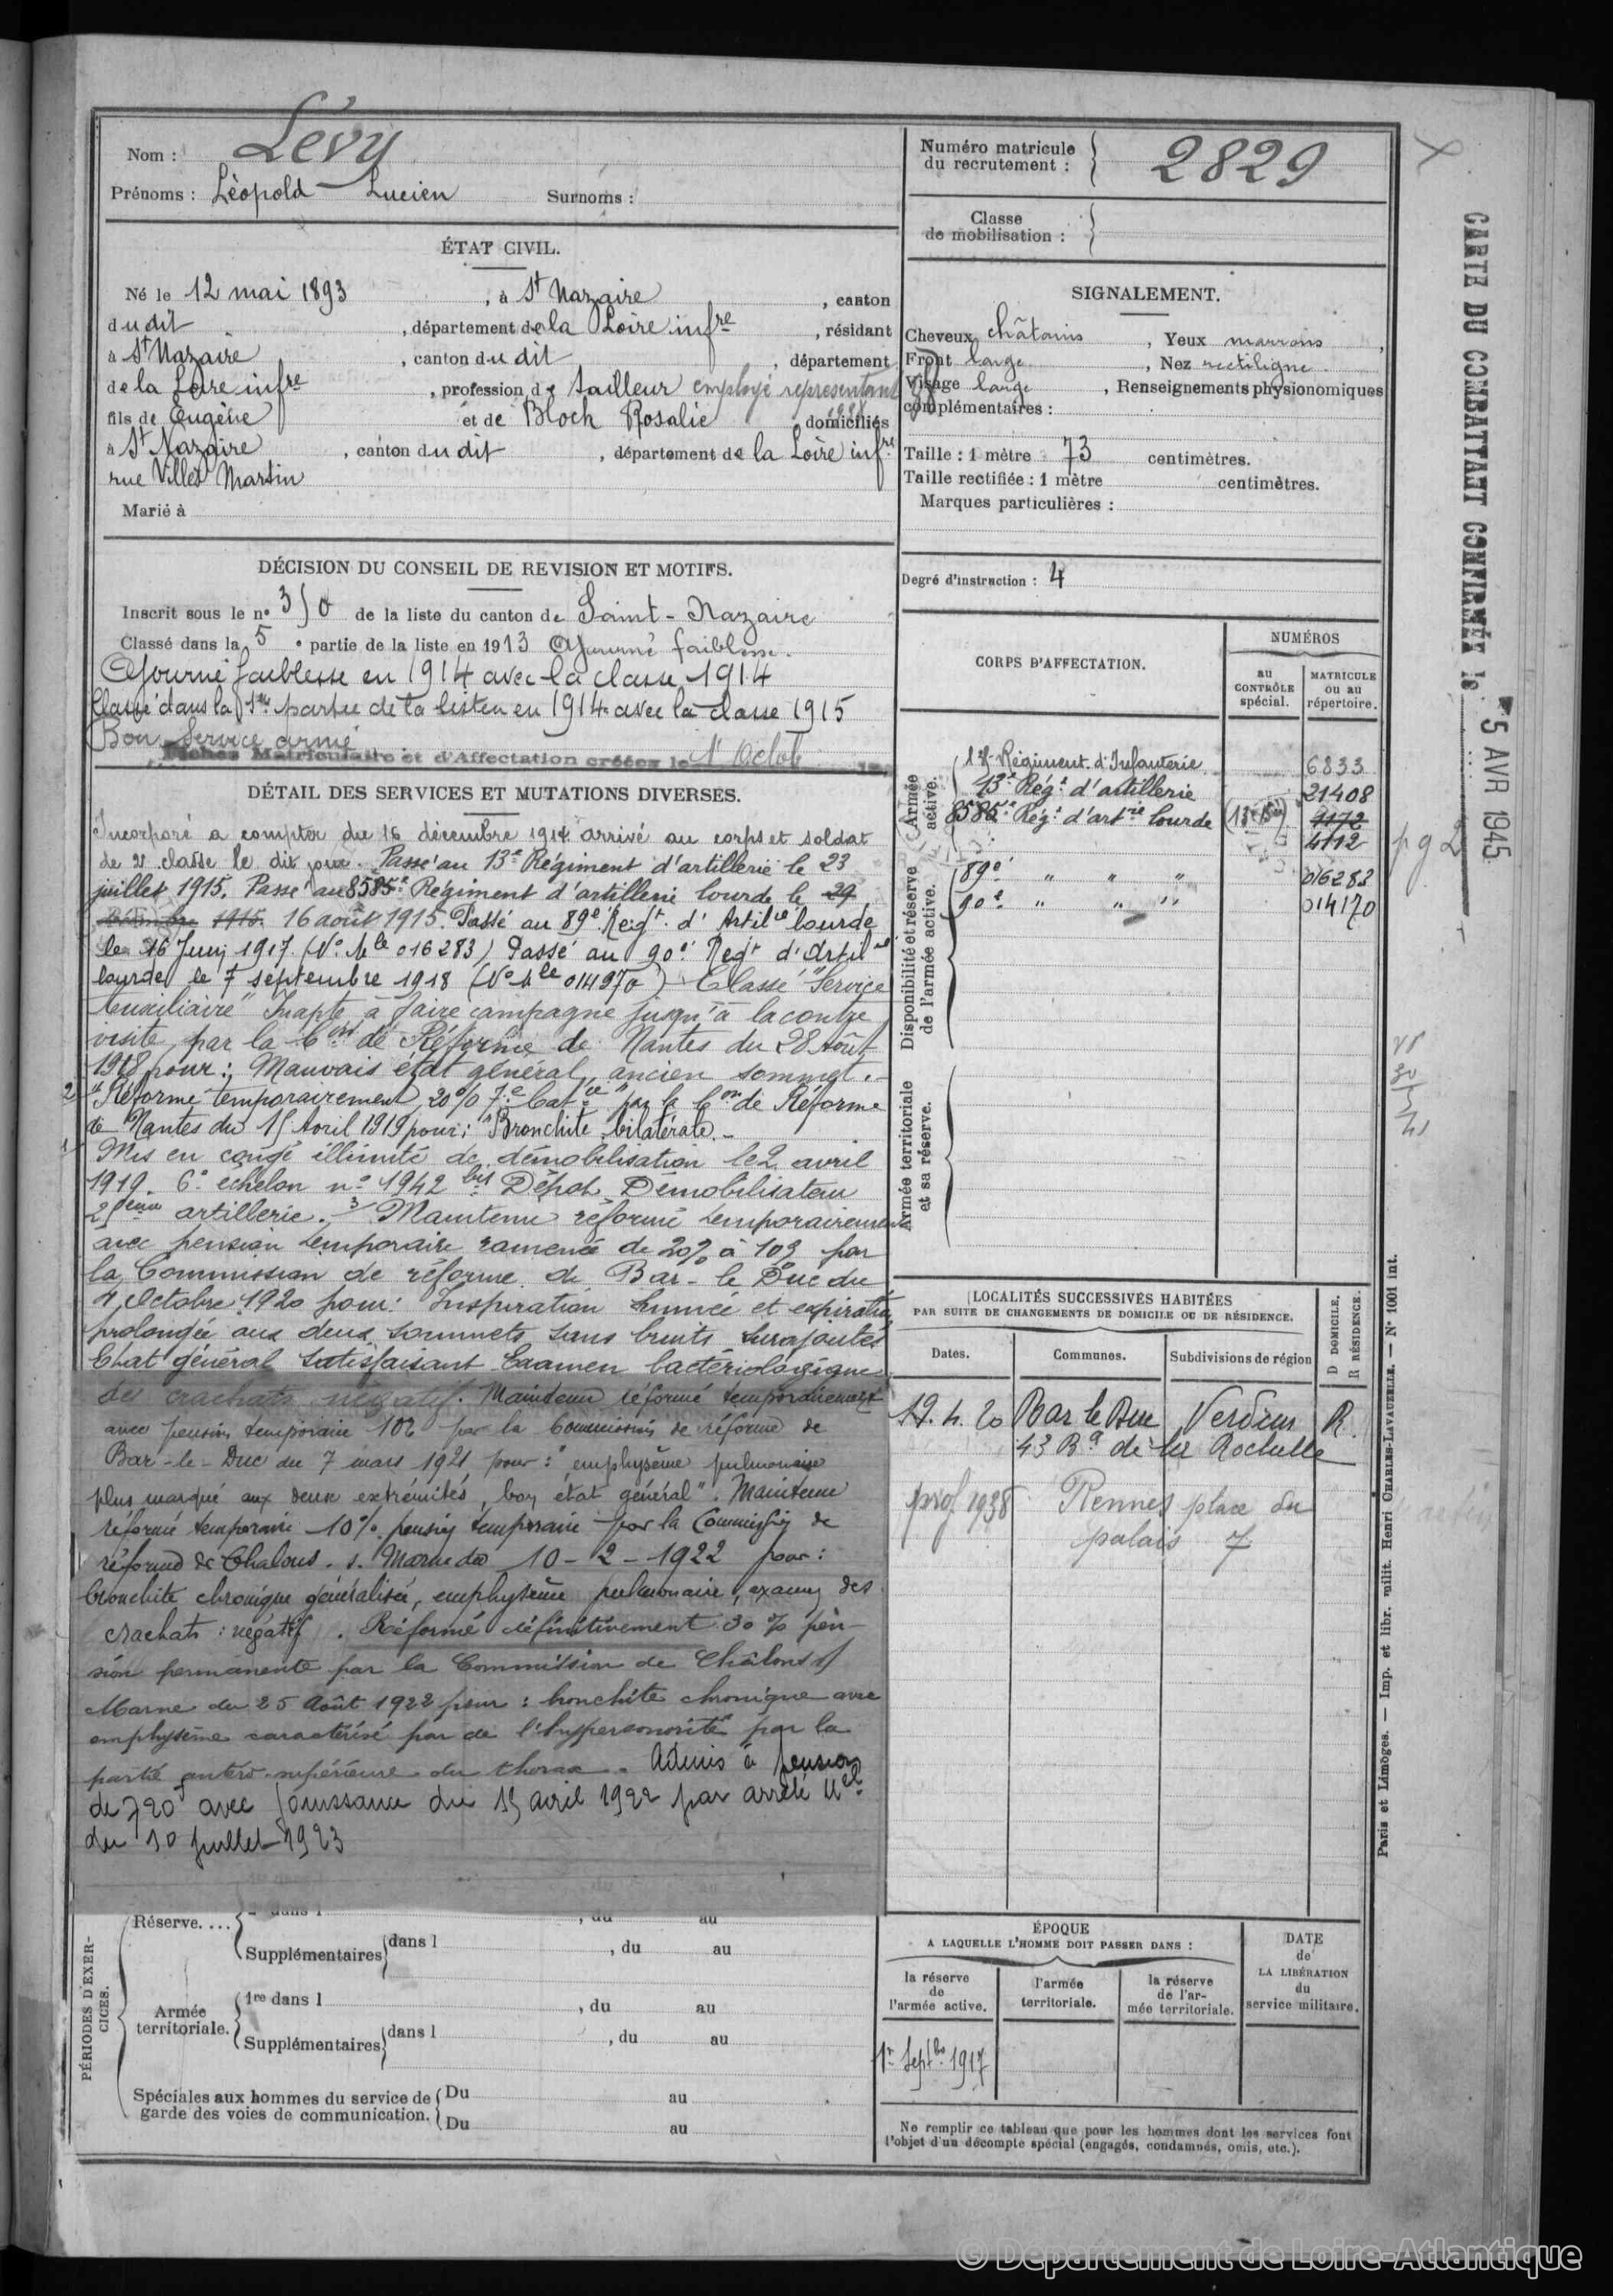 Nom : Lévy
Prénoms : Lèopold Lucien Surnoms :
Numéro matricule du recrutement : 2829
Classe de mobilisation :
ÉTAT CIVIL.
Né le 12 mai 1893, à St Nazaire, canton
dudit, département de la Loire infre, résidant
à St Nazaire, canton dudit, département
de la Loire infre, profession de tailleur employé représentant
fils de Eugène et de Bloch Rosalie domiciliés
à St Nazaire, canton dudit, département de la Loire infre
rue Villès Martin
Marié à
SIGNALEMENT.
Cheveux châtains, Yeux marrons,
Front large, Nez rectiligne
Visage large, Renseignements physionomiques
complémentaires :
Taille : 1 mètre 73 centimètres.
Taille rectifiée : 1 mètre centimètres.
Marques particulières :
Degré d'instruction : 4
DÉCISION DU CONSEIL DE REVISION ET MOTIFS.
Inscrit sous le n° 350 de la liste du canton de Saint-Nazaire
Classé dans la 5e partie de la liste en 1913 Ajourné faiblesse.
Ajourné faiblesse en 1914 avec la classe 1914
Classé dans la 1re partie de la liste en 1914 avec la classe 1915
Bon Service armé
Fiches Matriculaire et d'Affectation créées le 1r Octob
DÉTAIL DES SERVICES ET MUTATIONS DIVERSES.
Incorporé a compter du 16 décembre 1914 arrivé au corps et soldat
de 2e classe le dit jour. Passé au 13e Régiment d'artillerie le 23
juillet 1915. Passé au 85e Régiment d'artillerie lourde le 29
1915. 16 août 1915. Passé au 89e Régt. d'Artilie lourde
le 16 Juin 1917 (No Mle 016283) Passé au 90e Regt d'Artil
lourde le 7 septembre 1918 (No Mle 014970) Classé "Service
Auxiliaire" Inapte à faire campagne jusqu'à la contre
visite par la Con de Réforme de Nantes du 28 Août
1918 pour : Mauvais état général, ancien sommet.
2 "Réformé temporairement 20% 7e Catie" par la Con de Réforme
de Nantes du 15 Avril 1919 pour : "Bronchite bilatérale.
1 Mis en congé illimité de démobilisation le 2 avril
1919. 6e échelon no 1942 bis Dépôt Démobilisateur
25eme artillerie. 3/ Maintenu réformé temporairement
avec pension temporaire ramenée de 20% à 10% par
la Commission de réforme de Bar-le Duc du
4 Octobre 1920 pour : Inspiration humée et expiration
prolongée aux deux sommets sans bruits surajoutés
Etat général satisfaisant Examen bactériologique
des crachats négatif. Maintenu réformé temporairement
avec pension temporaire 10% par la Commission de réforme de
Bar-le-Duc du 7 mars 1921 pour : "emphysème pulmonaire
plus marqué aux deux extrémités, bon état général". Maintenu
réformé temporaire 10% pension temporaire par la Commission de
réforme de Chalons. s. Marne du 10-2-1922 pour :
bronchite chronique généralisée, emphysème pulmonaire, examen des
crachats : négatif. Réformé définitivement 30% pen-
sion permanente par la Commission de Châlons s/
Marne du 25 Août 1922 pour : bronchite chronique avec
emphysème caractérisé par de l'hypersonorité par la
partie antéro-supérieure du thorax. Admis à pension
de 720f avec jouissance du 15 avril 1922 par arrêté Mel
du 10 juillet 1923
CORPS D'AFFECTATION.
NUMÉROS
au CONTRÔLE spécial.
MATRICULE ou au répertoire.
Armée active.
Régiment d'Infanterie 6833
13e Régt d'artillerie 21408
85e Régt d'artie lourde 4172
4112
Disponibilité et réserve de l'armée active.
89e " " " 016283
90e " " " 014170
Armée territoriale et sa réserve.
LOCALITÉS SUCCESSIVES HABITÉES
PAR SUITE DE CHANGEMENTS DE DOMICILE OU DE RÉSIDENCE.
Dates. Communes. Subdivisions de région D DOMICILE. R RÉSIDENCE.
19.4.20 Bar le Duc Verdun R.
43 Bd de la Rochelle
1938 Rennes place du
palais 7
PÉRIODES D'EXERCICES.
Réserve....
2e dans l , du au
Supplémentaires dans l , du au
Armée territoriale.
1re dans l , du au
Supplémentaires dans l , du au
Spéciales aux hommes du service de garde des voies de communication.
Du au
Du au
ÉPOQUE
A LAQUELLE L'HOMME DOIT PASSER DANS :
la réserve de l'armée active.
l'armée territoriale.
la réserve de l'armée territoriale.
DATE de LA LIBÉRATION du service militaire.
1r Septbre 1917
Ne remplir ce tableau que pour les hommes dont les services font
l'objet d'un décompte spécial (engagés, condamnés, omis, etc.).
CARTE DU COMBATTANT CONFIRMÉE le 5 AVR 1945
Paris et Limoges. — Imp. et libr. milit. Henri CHARLES-LAVAUZELLE. — N° 1001 int.
© Département de Loire-Atlantique